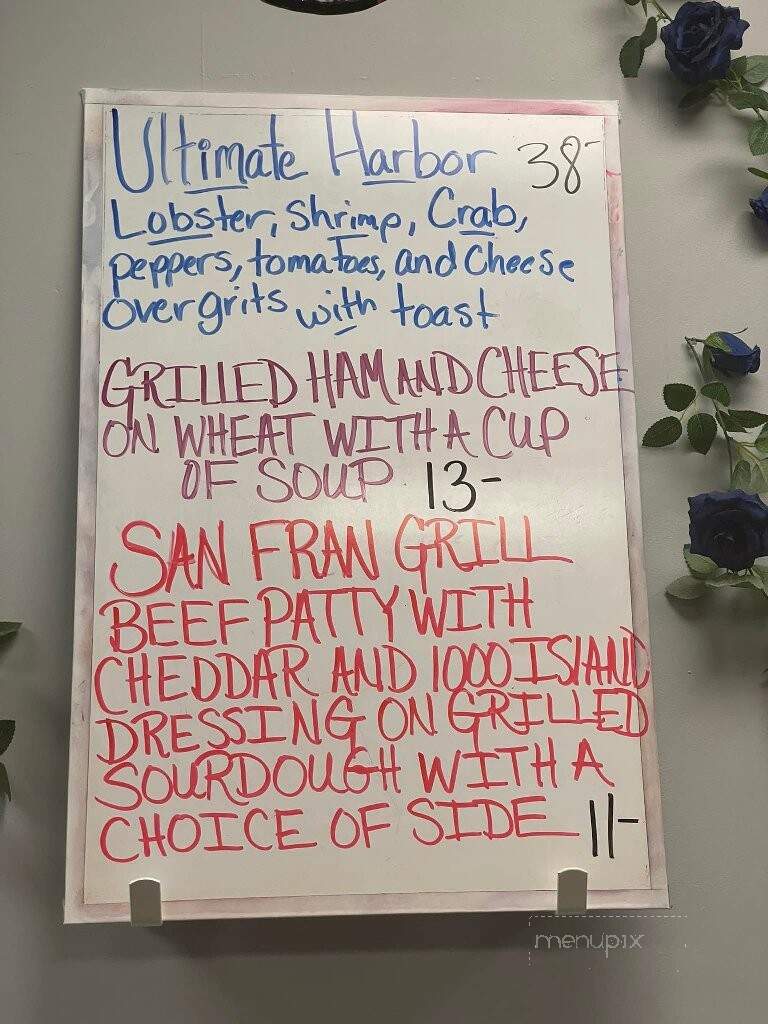 Ultimate Harbor 38-
Lobster, Shrimp, Crab,
peppers, tomatoes, and Cheese
over grits with toast
GRILLED HAM AND CHEESE
ON WHEAT WITH A CUP
OF SOUP 13-
SAN FRAN GRILL
BEEF PATTY WITH
CHEDDAR AND 1000 ISLAND
DRESSING ON GRILLED
SOURDOUGH WITH A
CHOICE OF SIDE 11-
menupix